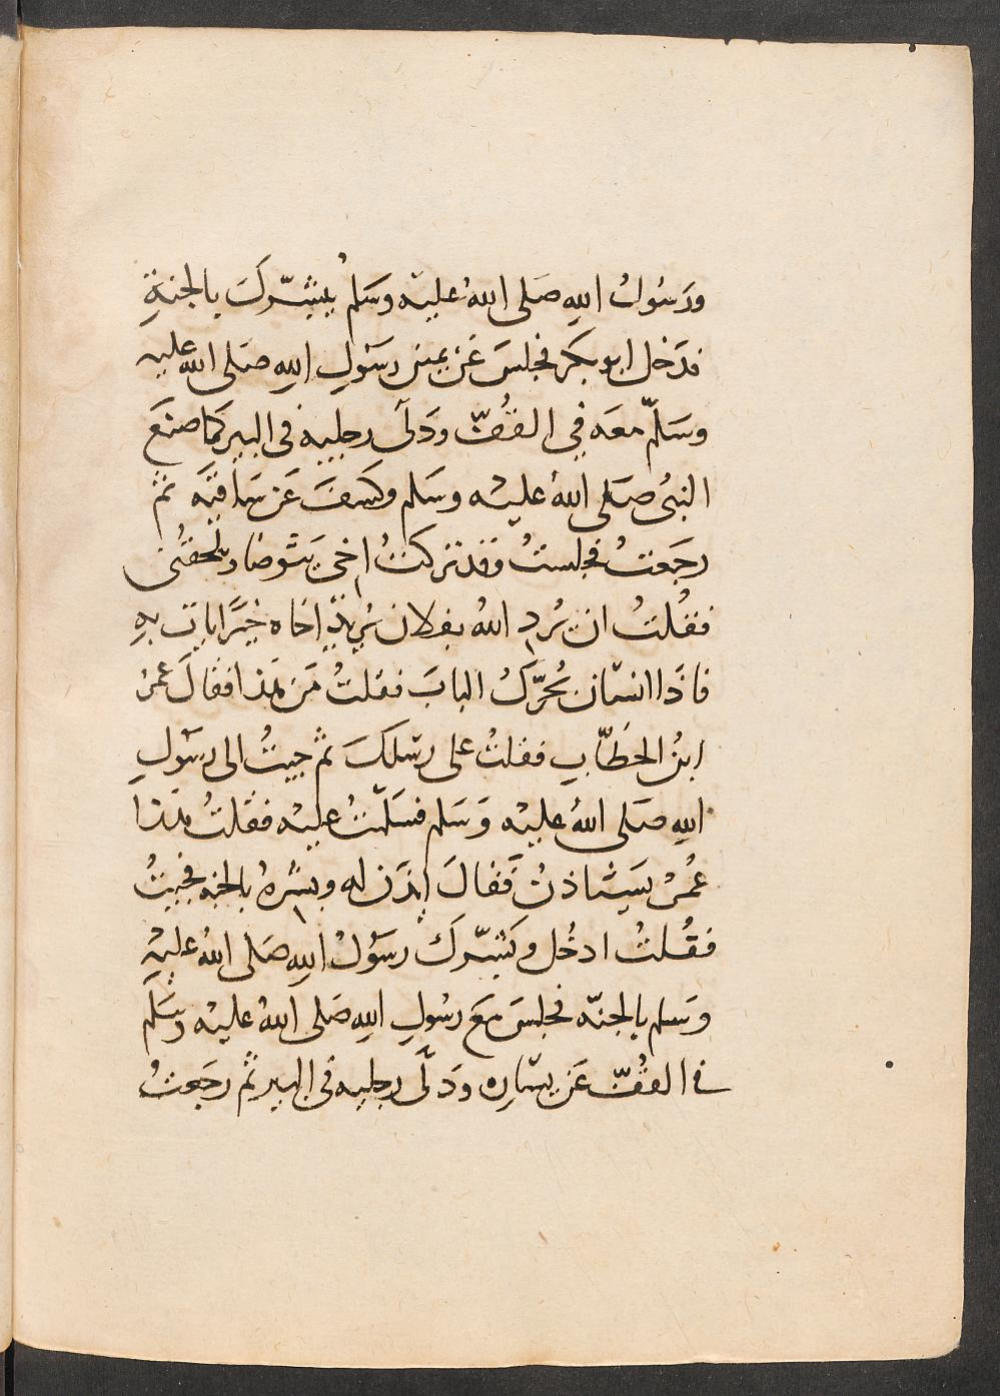 ورَسُولُ اللهِ صَلى اللهُ عليْه وسَلم يُبشّركَ بالجنةِ
فدَخل ابو بكر فجلسَ عَنْ يمين رسَولِ اللهِ صَلى الله عليه
وسَلّم معَه فِي القُفّ ودَلّى رجليه فى البير كمَا صنعَ
النبىُ صَلى اللهُ عليْه وسَلم وكشفَ عَن سَاقيَه ثمّ
رجَعتُ فجلستُ وقد تركتُ اخى يَتوضا ويلحقُنى
فقُلتُ ان يُردِ اللهُ بفلان يُريدُ اخاه خيرًا يات بهِ
فاذَا انسَان يُحرّكُ البابَ فقلتُ مَن هَذا فقالَ عمرُ
ابنُ الخطّابِ فقلتُ على رسْلكَ ثم جيتُ الى رسَولِ
اللهِ صَلى اللهُ عليْه وَسَلم فسَلّمتُ عليْه فقلتُ هَذا
عُمرُ يسَتاذنُ فَقالَ ايذَن له وبشرهُ بالجنه فجيتُ
فقُلتُ ادخُل وبَشّركَ رسَولُ اللهِ صَلى اللهُ عليْه
وَسَلم بالجنّه فجلسَ معَ رسُولِ اللهِ صَلى اللهُ عليْه وسَلّم
في القُفّ عَن يسَارِه ودَلّى رجليه فى البير ثم رجَعتُ